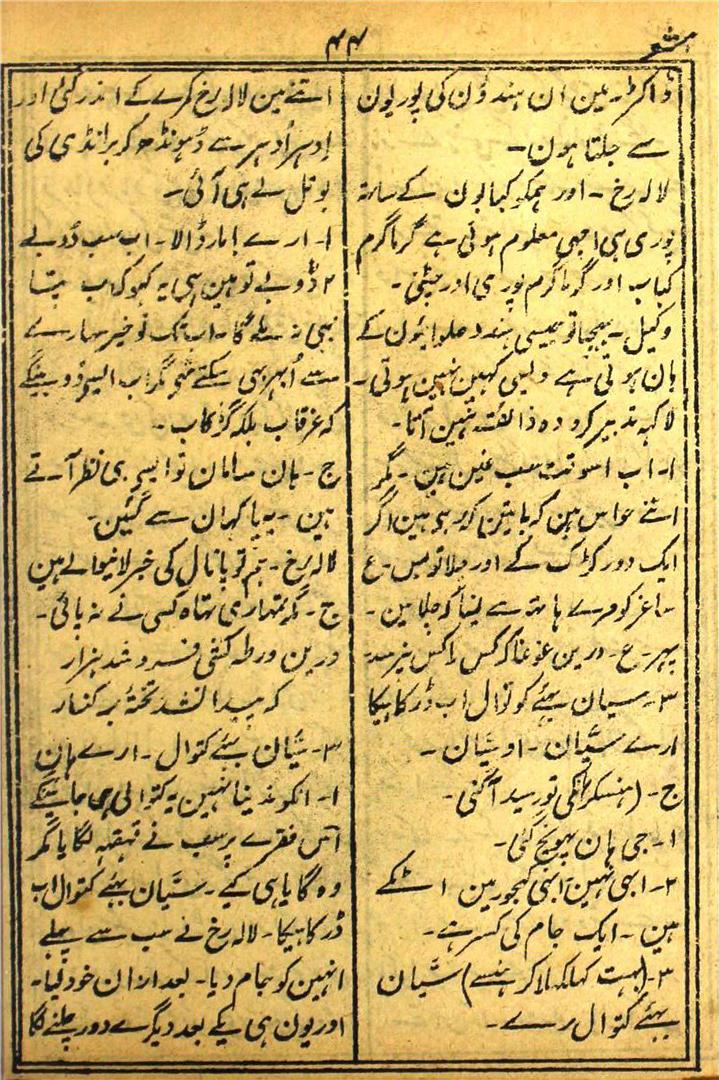 ۴۴
ڈاکٹر۔ مین ان ہندوُن کی پوریون
سے جلتا ہون۔
لالہ رخ۔ اور ہمکو کبابون کے ساتہ
پوری ہی اچہی معلوم ہوتی ہے گرماگرم
کباب اور گرماگرم پوری اور چٹنی۔
وکیل۔ جیسی ہندو حلوائیون کے
ہان ہوتی ہے ویسی کہین نہین ہوتی۔
لاکہہ تدبیر کرو وہ ذائقہ نہین آتا۔
۱۔ اب اسوقت سب غین ہین۔ مگر
اتنے حواس ہین کہ باتین کر رہے ہین اگر
ایک دور کڑک کے اور چلا تو بس۔ ع
ساغر کو مرے ہاتہ سے لینا کہ چلا مین۔
پہر۔ ع۔ درین غوغا کہ کس را کس نپرسد
۳۔ سیان بہئے کوتوال اب ڈر کاہیکا
ارے سیّان۔ او سیّان۔
ج۔ (ہنسکر) انکی تو رسید آگئی۔
۱۔ جی ہان پہونچ گئی۔
۲۔ ابہی نہین ابہی کہجورمین اٹکے
ہین۔ ایک جام کی کسر ہے۔
۳۔ (بہت کہلکہلا کر ہنسے) سیّان
بہئے کتوال رے۔
اتنے مین لالہ رخ کمرے کے اندر گئی اور
اِدہر اُدہر سے ڈہونڈہ کر برانڈی کی
بوتل لے ہی آئی۔
۱۔ ارے! مار ڈالا۔ اب سب ڈوبے
۲ ڈوبے تو ہین ہی یہ کہو کہ اب پتا
بہی نہ ملے گا۔ اب تک تو خیر سہارے
سے اُبہر بہی سکتے تہے مگر اب ایسے ڈوبینگے
کہ غرقاب بلکہ گڑکاب۔
ج۔ ہان سامان تو ایسے ہی نظر آتے
ہین۔ یہ یا کہان سے گئین۔
لالہ رخ۔ ہم تو پاتال کی خبر لانیوالے ہین
ج۔ مگر تمہاری تہاہ کسی نے نہ پائی۔
درین ورطہ کشتی فرو شد ہزار
کہ پیدا نشد تختہٴ برکنار
۳۔ سیّان بہئے کتوال۔ ارے ہان
۱۔ انکو نہ دینا نہین یہ کتوالی ہی جاینگے
اس فقرے پر سب نے قہقہہ لگایا مگر
وہ گایا ہی کیے۔ سیّان بہئے کتوال اب
ڈر کاہیکا۔ لالہ رخ نے سب سے پہلے
انہین کو جام دیا۔ بعد ازان خود لیا۔
اور یون ہی یکے بعد دیگرے دور چلنے لگا